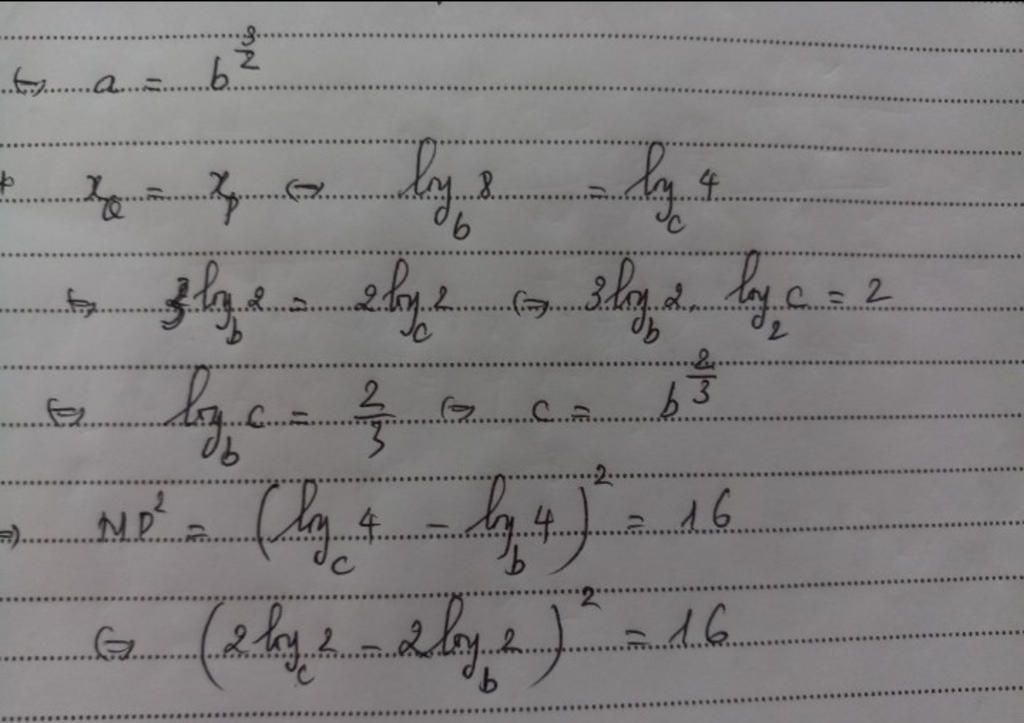 ⇔ a = b^{3/2}
* x_Q = x_P ⇔ log_b 8 = log_c 4
⇔ 3 log_b 2 = 2 log_c 2 ⇔ 3 log_b 2 . log_2 c = 2
⇔ log_b c = 2/3 ⇔ c = b^{2/3}
⇒ MP² = (log_c 4 - log_b 4)² = 16
⇔ (2 log_c 2 - 2 log_b 2)² = 16